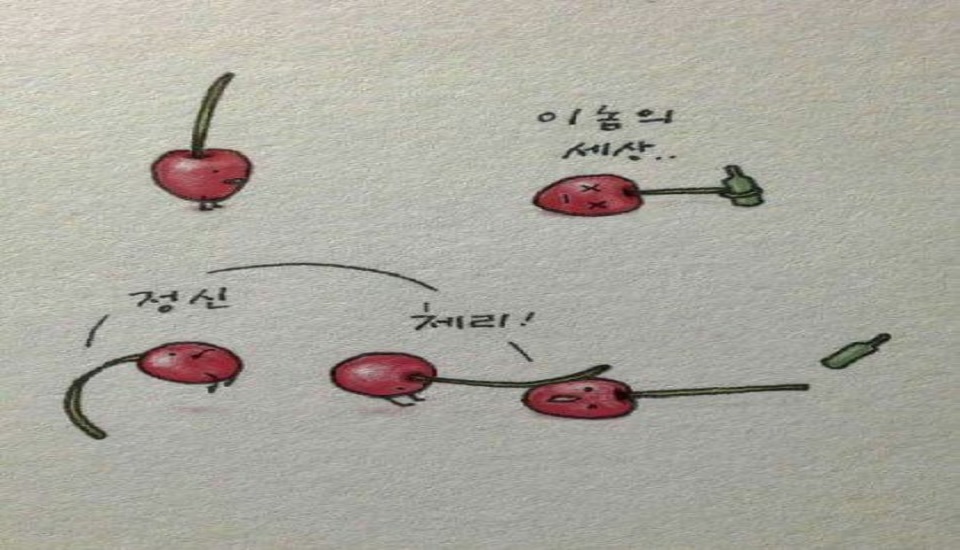 이놈의
세상..
정신
체리!